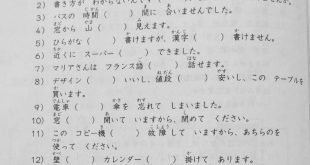 2) 書き方が わからないんです
3) バスの 時間（ ）間に 合いませんでした。
4) 窓から 山（ ）見えます。
5) ひらがな（ ）書けますが、漢字（ ）書けません。
6) 近くに スーパー（ ）できました。
7) マリアさんは フランス語（ ）話せます。
8) デザイン（ ）いいし、値段（ ）安いし、この テーブルを
買います。
9) 電車（ ）傘を 忘れて しまいました。
10) 窓（ ）開いて いますから、閉めて ください。
11) この コピー機（ ）故障して いますから、あちらのを
使って ください。
12) 壁（ ）カレンダー（ ）掛けて あります。